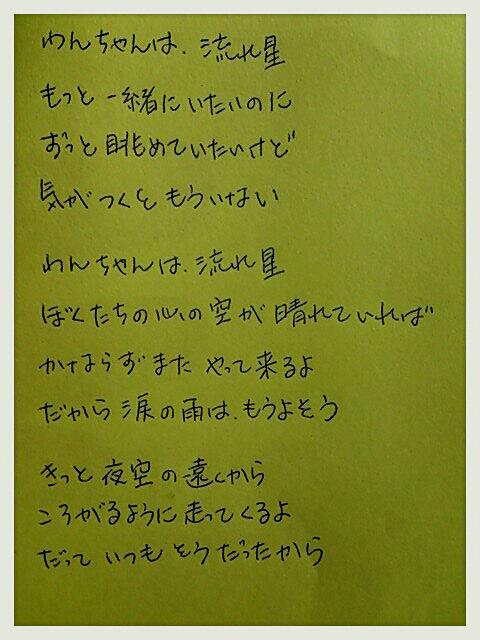 わんちゃんは、流れ星
もっと一緒にいたいのに
ずっと眺めていたいけど
気がつくともういない
わんちゃんは、流れ星
ぼくたちの心の空が晴れていれば
かならずまたやって来るよ
だから涙の雨は、もうよそう
きっと夜空の遠くから
ころがるように走ってくるよ
だっていつもそうだったから